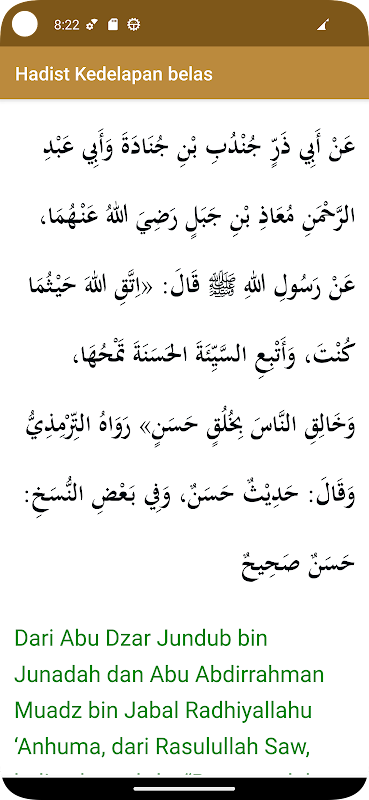 8:22
Hadist Kedelapan belas
عَنْ أَبِي ذَرٍّ جُنْدُبِ بْنِ جُنَادَةَ وَأَبِي عَبْدِ
الرَّحْمَنِ مُعَاذِ بْنِ جَبَلٍ رَضِيَ اللهُ عَنْهُمَا،
عَنْ رَسُولِ اللهِ ﷺ قَالَ: «اِتَّقِ اللهَ حَيْثُمَا
كُنْتَ، وَأَتْبِعِ السَّيِّئَةَ الحَسَنَةَ تَمْحُهَا،
وَخَالِقِ النَّاسَ بِخُلُقٍ حَسَنٍ» رَوَاهُ التِّرْمِذِيُّ
وَقَالَ: حَدِيْثٌ حَسَنٌ، وَفِي بَعْضِ النُّسَخِ:
حَسَنٌ صَحِيحٌ
Dari Abu Dzar Jundub bin
Junadah dan Abu Abdirrahman
Muadz bin Jabal Radhiyallahu
‘Anhuma, dari Rasulullah Saw,